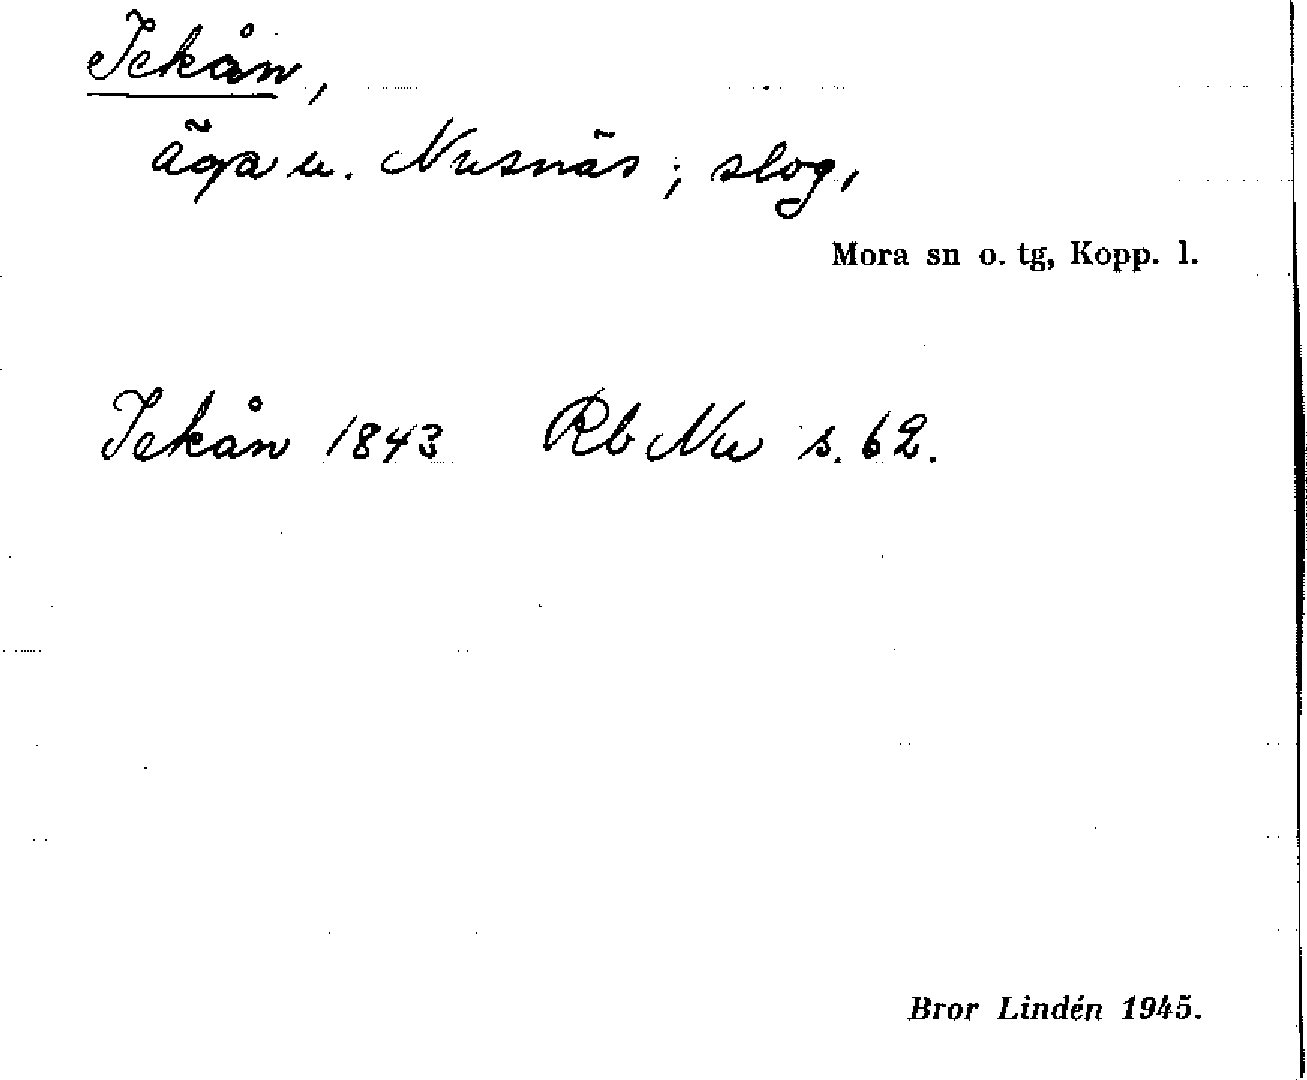 Tekån,
äga u. Nusnäs; slog,
Mora sn o. tg, Kopp. l.
Tekån 1843 Rb Nu s. 62.
Bror Lindén 1945.